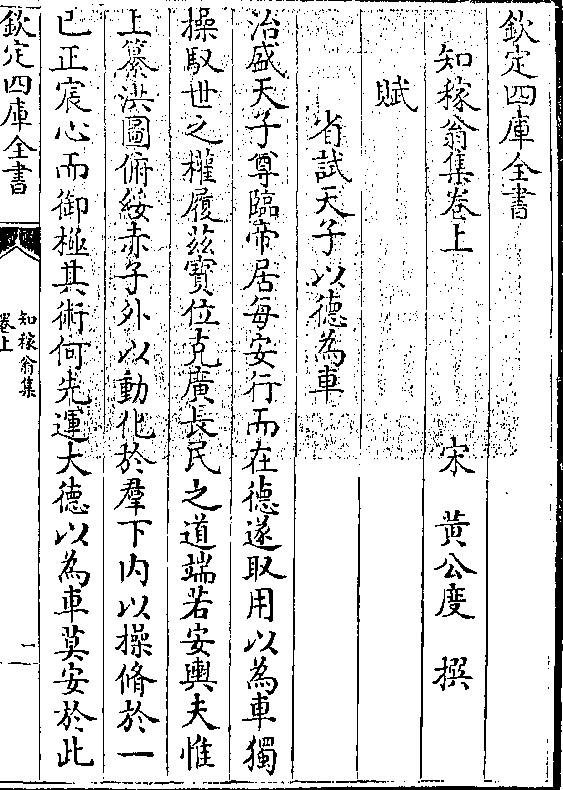 欽定四庫全書
知稼翁集卷上　宋　黃公度　撰
賦
省試天子以德為車
治盛天子尊臨帝居每安行而在德遂取用以為車獨
操馭世之權履茲寶位克廣長民之道端若安輿夫惟
上纂洪圖俯綏赤子外以動化於羣下內以操脩於一
已正宸心而御極其術何先運大德以為車莫安於此
欽定四庫全書
知稼翁集
卷上
一